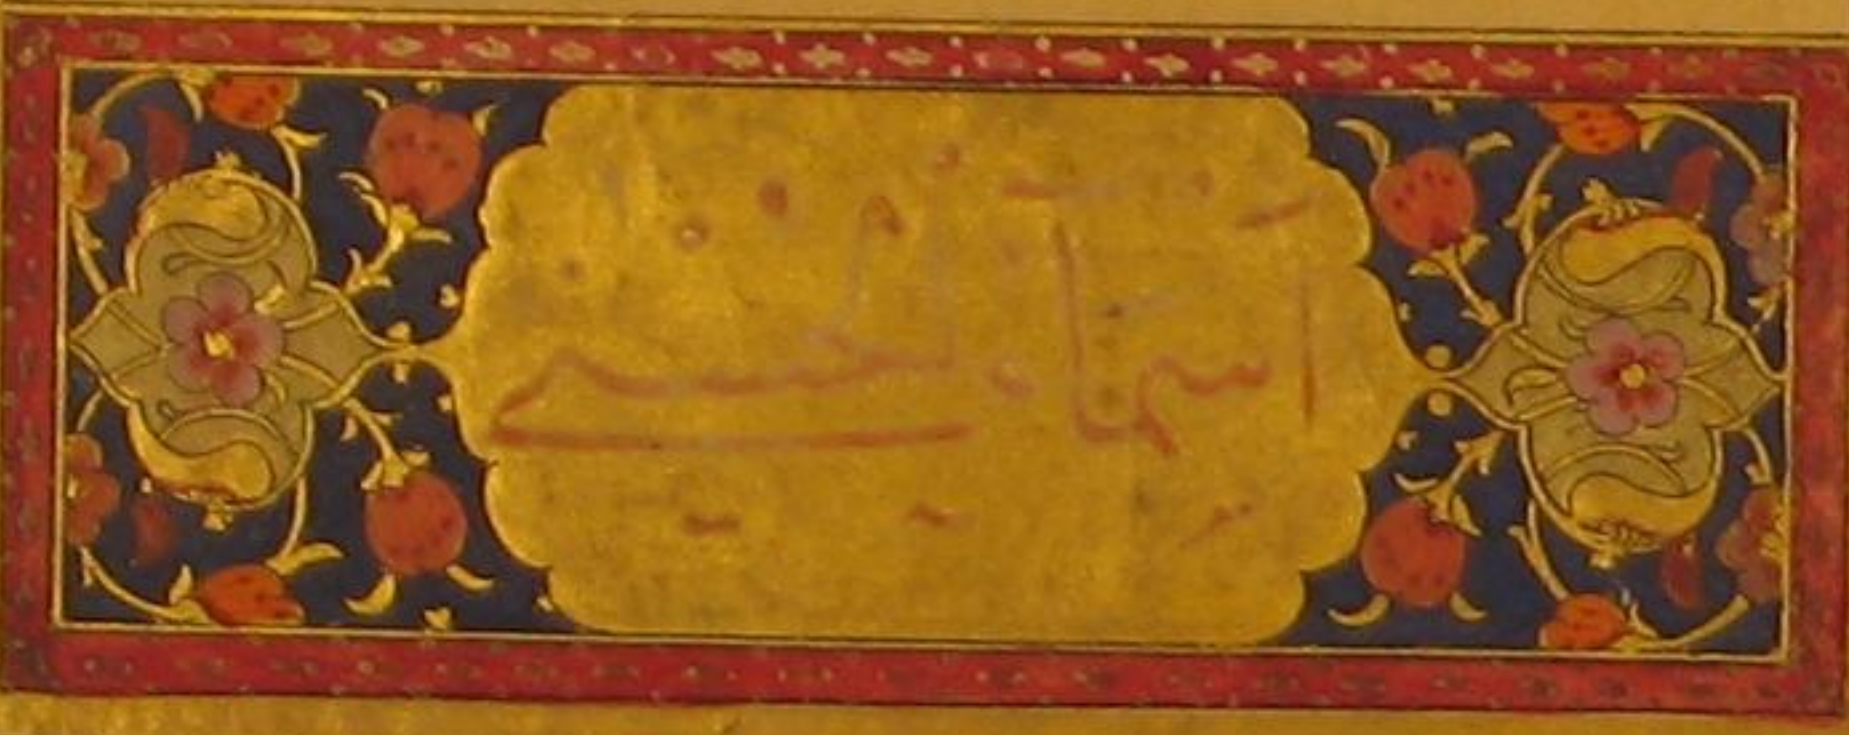 اسماء الحسنى